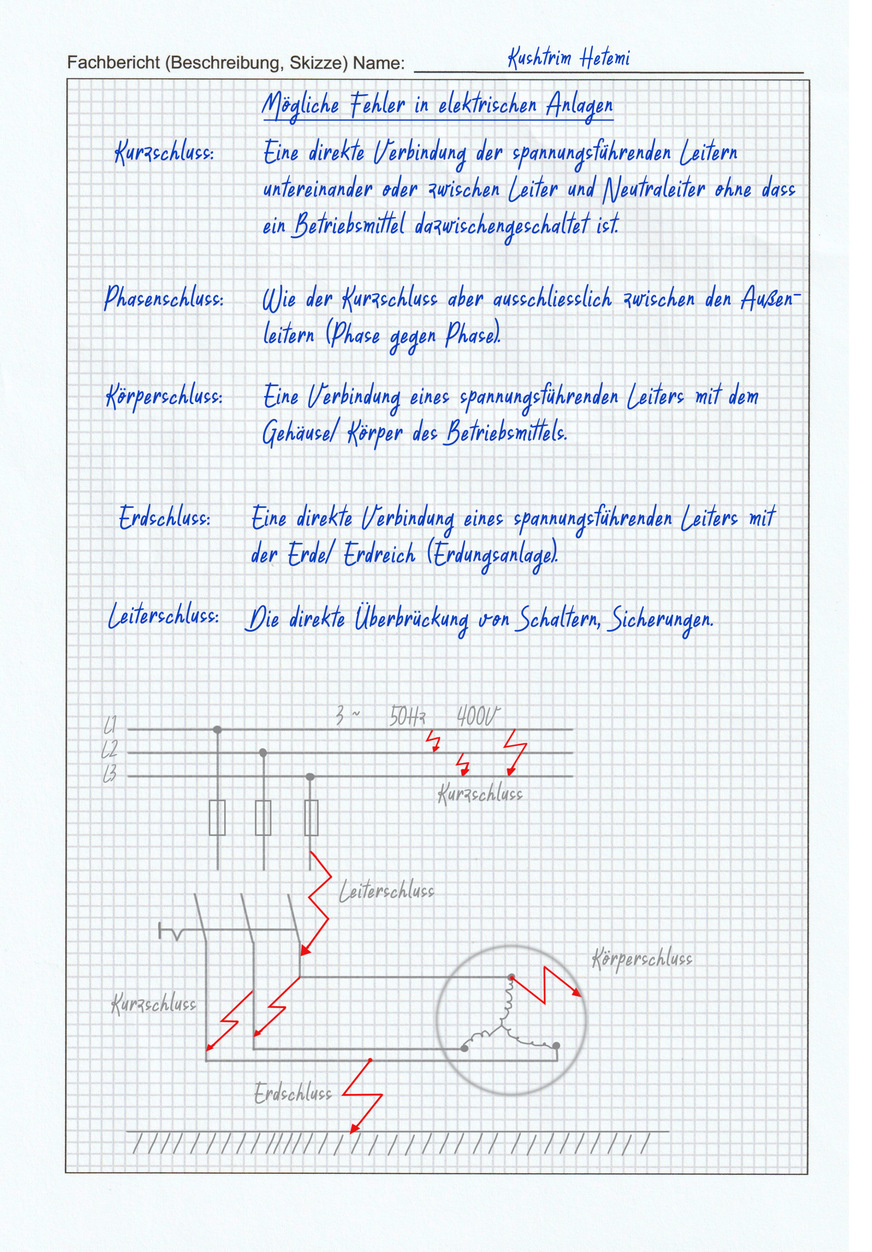 Fachbericht (Beschreibung, Skizze) Name: Kushtrim Hetemi
Mögliche Fehler in elektrischen Anlagen
Kurzschluss: Eine direkte Verbindung der spannungsführenden Leitern
untereinander oder zwischen Leiter und Neutraleiter ohne dass
ein Betriebsmittel dazwischengeschaltet ist.
Phasenschluss: Wie der Kurzschluss aber ausschliesslich zwischen den Außen-
leitern (Phase gegen Phase).
Körperschluss: Eine Verbindung eines spannungsführenden Leiters mit dem
Gehäuse/ Körper des Betriebsmittels.
Erdschluss: Eine direkte Verbindung eines spannungsführenden Leiters mit
der Erde/ Erdreich (Erdungsanlage).
Leiterschluss: Die direkte Überbrückung von Schaltern, Sicherungen.
3 ~ 50Hz 400V
L1
L2
L3
Kurzschluss
Leiterschluss
Körperschluss
Kurzschluss
Erdschluss